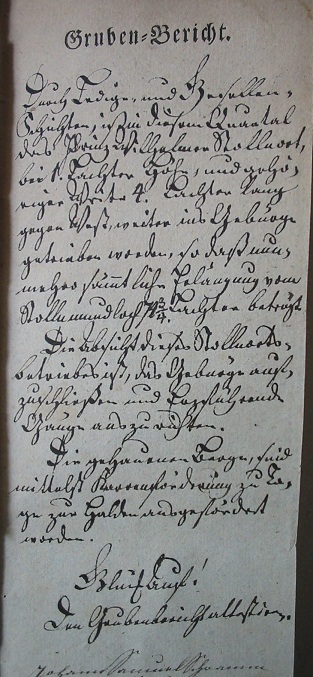 Gruben-Bericht.
Durch Ledige- und Gesellen-
Schichten, ist in diesem Quartal
das Prinz Wilhelmer Stollnort,
bei 1. Lachter Höhe, und gehö-
riger Weite 4. Lachter lang
gegen West, weiter ins Gebürge
getrieben worden, so daß nun-
mehro sämmtliche Erlängung vom
Stollnmundloch 78 3/4. Lachter beträgt.
Die Absicht dieses Stollnorts-
betriebes ist, das Gebürge auf-
zuschließen und Erzführende
Gänge auszurichten.
Die gehauenen Berge, sind
mittelst Karrenförderung zu Ta-
ge zur Halden ausgefördert
worden.
Glück auf!
Den Grubenbericht attestiren.
Johann Samuel Schramm